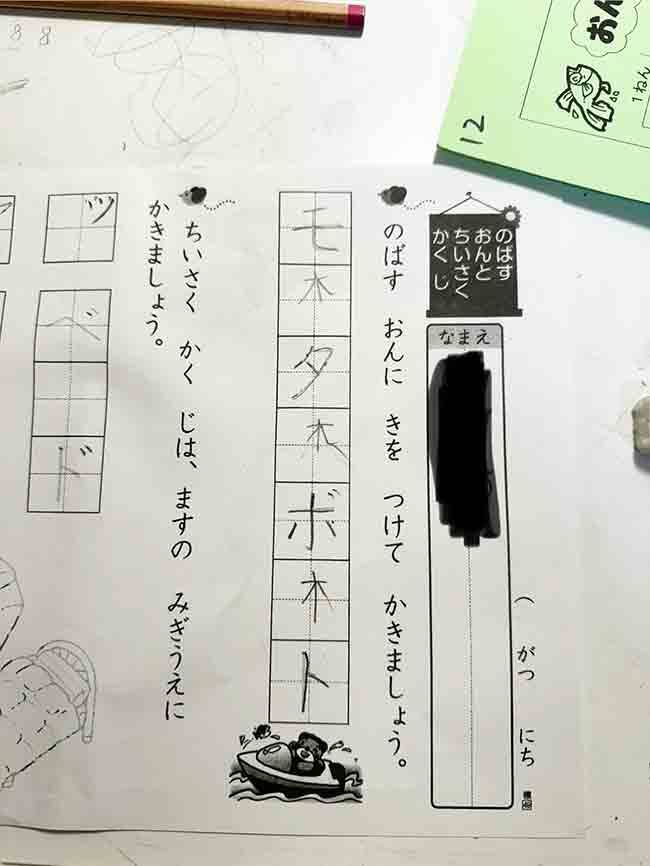 12
おん
1ねん
8 8
のばす
おんと
ちいさく
かく じ
なまえ
( がつ にち
のばす おんに きを つけて かきましょう。
モ木タ木ボ木ト
ちいさく かく じは、ますの みぎうえに
かきましょう。
ッ
ベ ド